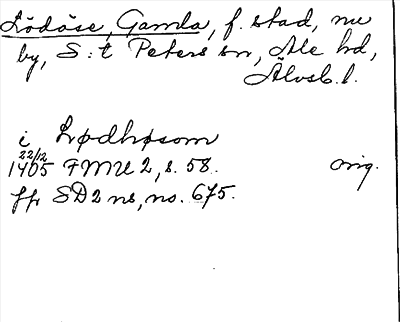 Lödöse, Gamla, f. stad, nu
by, S:t Peters sn, Ale hd,
Älvsb. l.
i Lødhøsom
22/12
1405 FMU 2, s. 58. orig.
ffr SD 2 ns, no. 675.